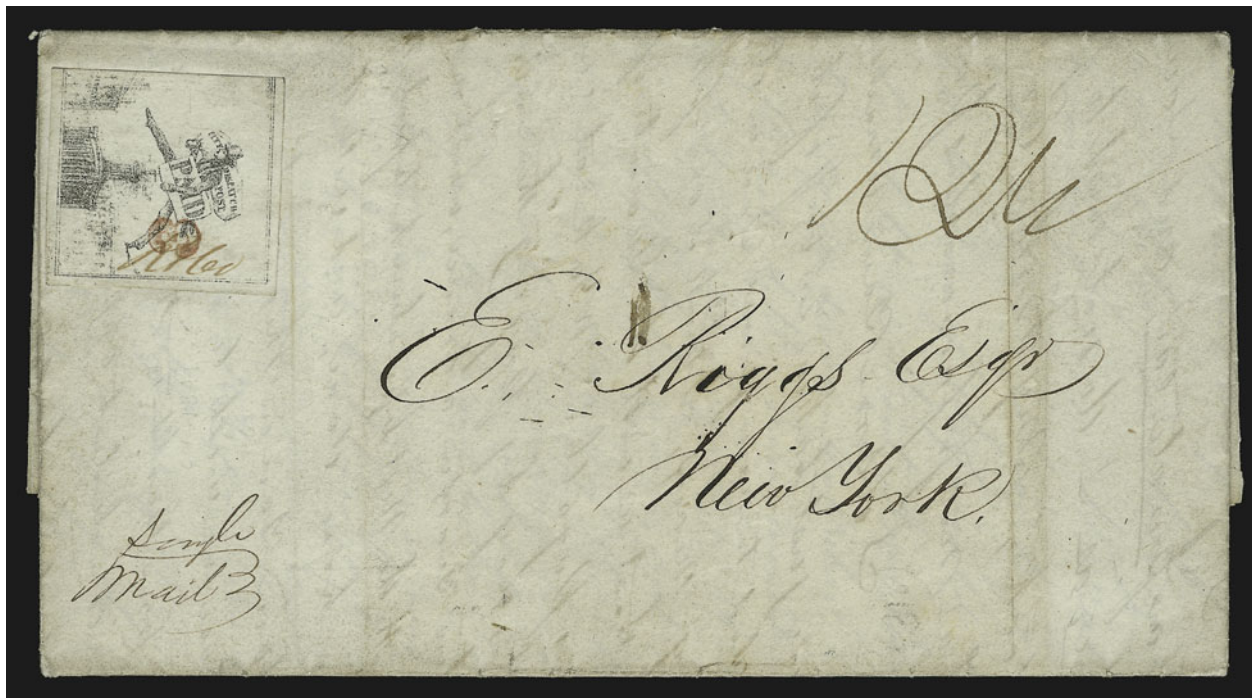 CITY DESPATCH
POST
PAID
E. Riggs Esqr
New York.
Single
Mail